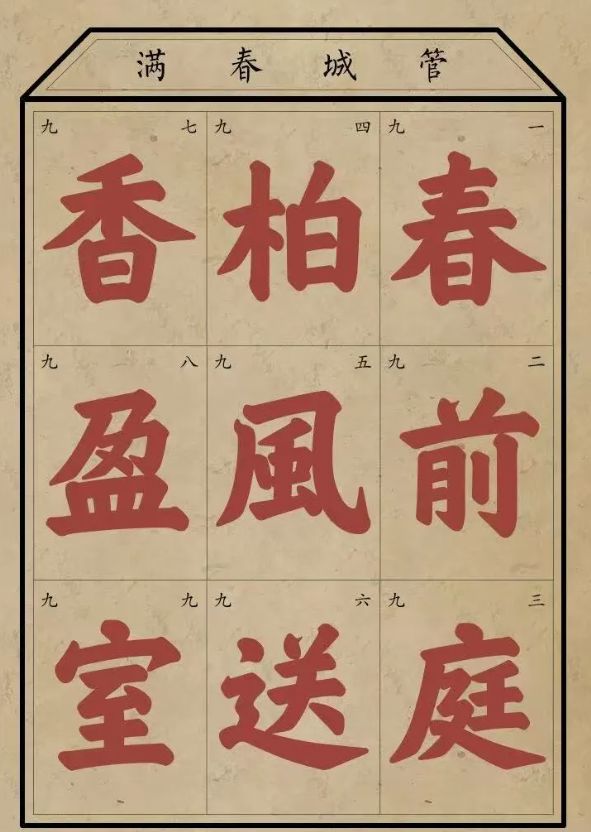 管城春满
一九
春
二九
前
三九
庭
四九
柏
五九
風
六九
送
七九
香
八九
盈
九九
室